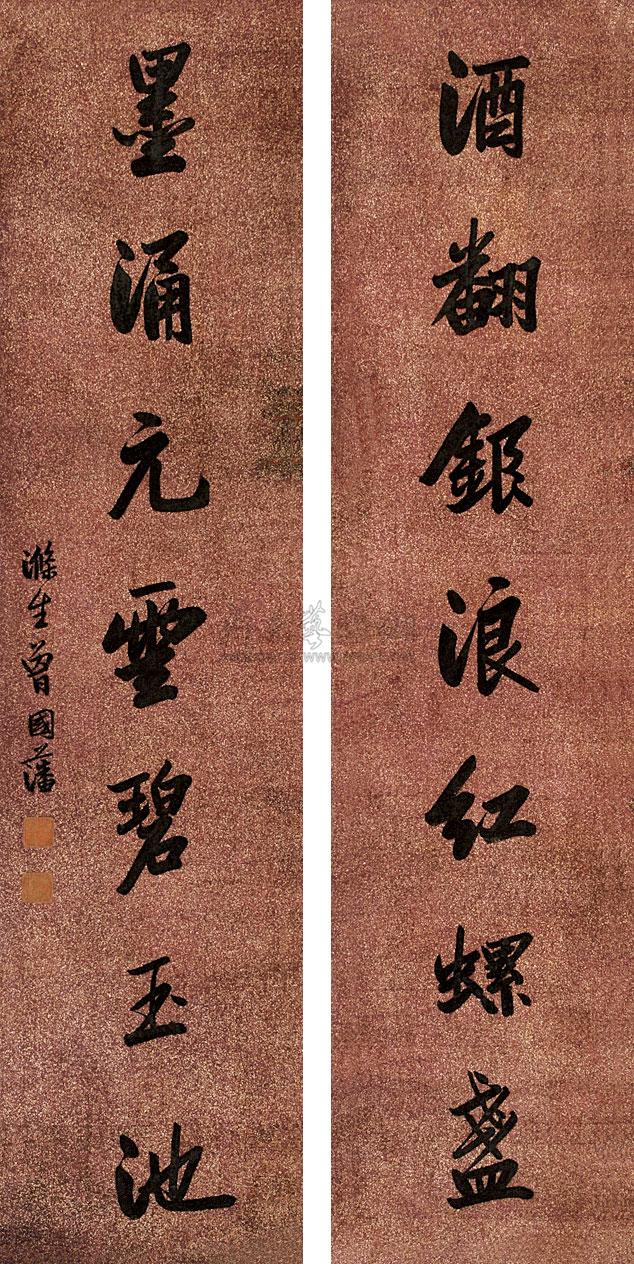 酒翻銀浪红螺盏
墨涌元雲碧玉池
滌生曾國藩